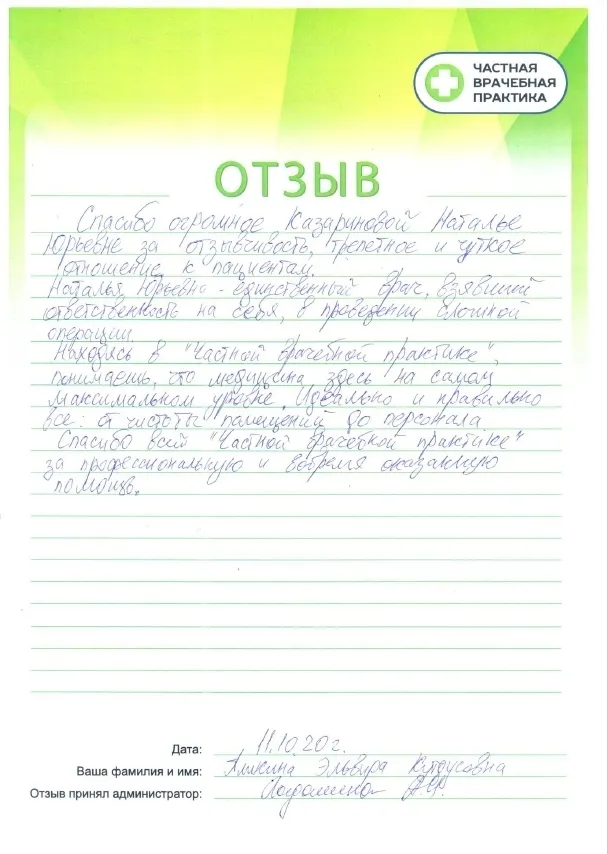 ЧАСТНАЯ
ВРАЧЕБНАЯ
ПРАКТИКА
ОТЗЫВ
Спасибо огромное Казариновой Наталье
Юрьевне за отзывчивость, трепетное и чуткое
отношение к пациентам.
Наталья Юрьевна - единственный врач, взявший
ответственность на себя, в проведении сложной
операции.
Находясь в "Частной врачебной практике",
понимаешь, что медицина здесь на самом
максимальном уровне. Идеально и правильно
все: от чистоты помещений до персонала.
Спасибо всей "Частной врачебной практике"
за профессиональную и вовремя оказанную
помощь.
Дата: 11.10.20г.
Ваша фамилия и имя: Эльвира
Отзыв принял администратор: